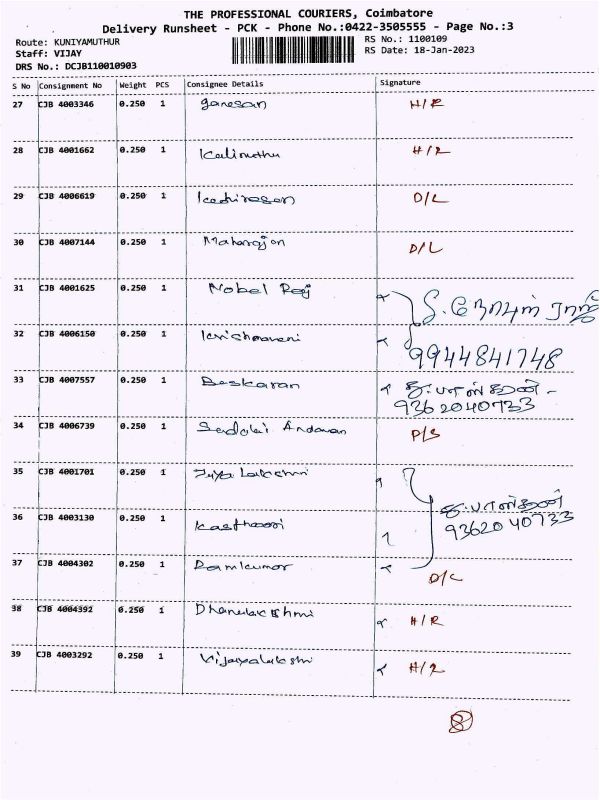 THE PROFESSIONAL COURIERS, Coimbatore
Delivery Runsheet - PCK - Phone No.:0422-3505555 - Page No.:3
Route: KUNIYAMUTHUR RS No.: 1100109
Staff: VIJAY RS Date: 18-Jan-2023
DRS No.: DCJB110010903
S No Consignment No Weight PCS Consignee Details Signature
27 CJB 4003346 0.250 1 Ganesan H/R
28 CJB 4001662 0.250 1 Kalimuthu H/R
29 CJB 4006619 0.250 1 Kathiresan D/L
30 CJB 4007144 0.250 1 Maharajan D/L
31 CJB 4001625 0.250 1 Nobel Raj
32 CJB 4006150 0.250 1 Krishnaveni 9944841748
33 CJB 4007557 0.250 1 Baskaran க.பாஸ்கரன் -
9362040733
34 CJB 4006739 0.250 1 Andavan D/S
35 CJB 4001701 0.250 1 Jeyalakshmi
க.பாஸ்கரன்
36 CJB 4003130 0.250 1 Kasthoori 9362040733
37 CJB 4004302 0.250 1 Ramkumar D/L
38 CJB 4004392 0.250 1 Dhanalakshmi H/R
39 CJB 4003292 0.250 1 Vijayalakshmi H/R
8